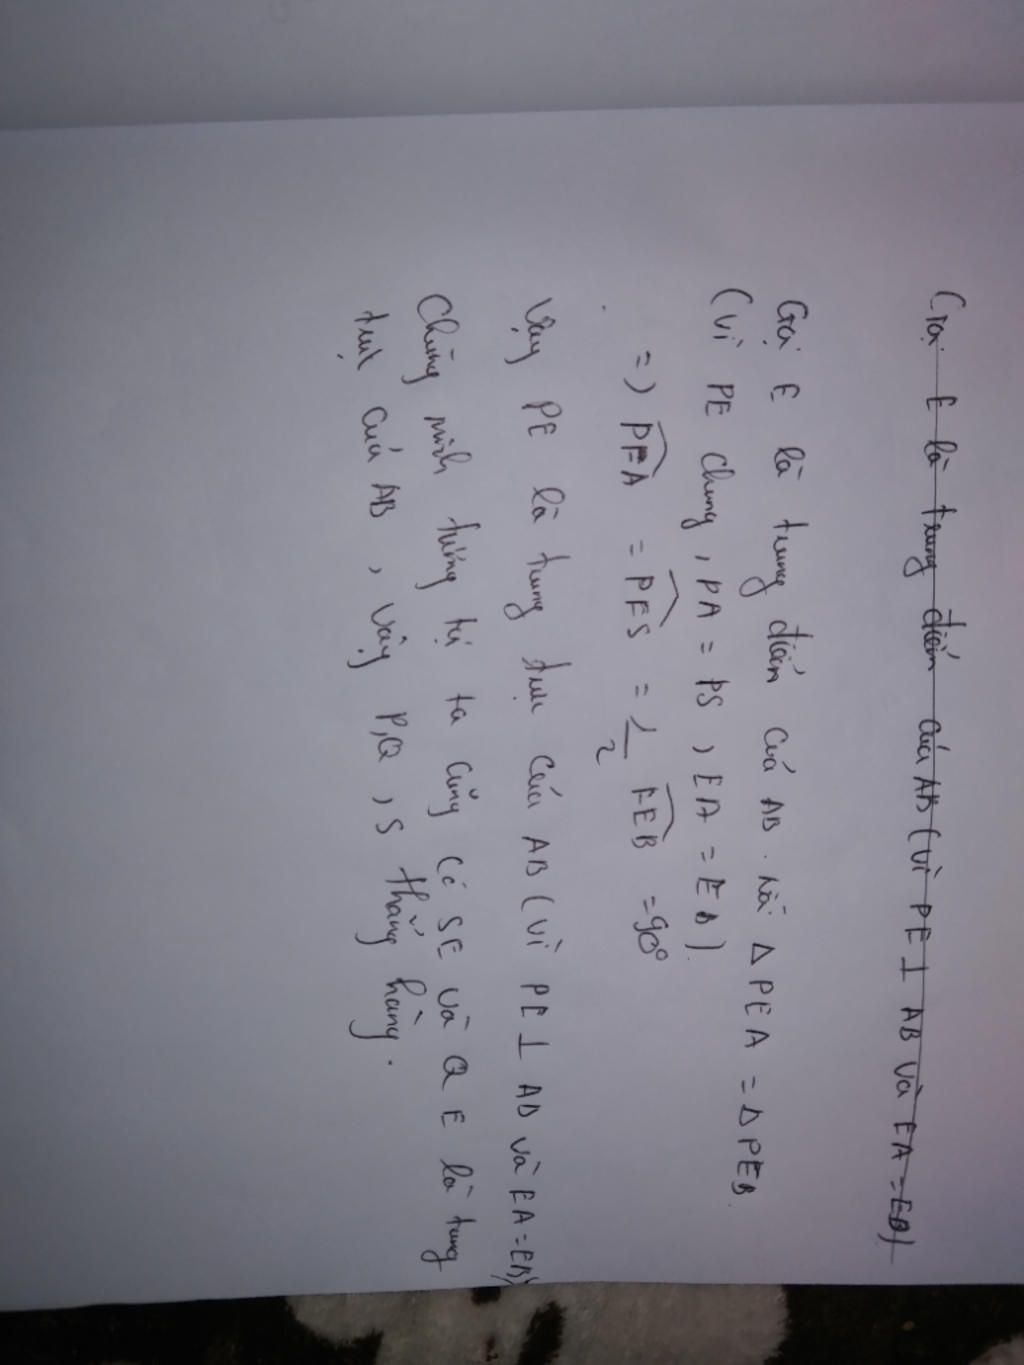 Gọi E là trung điểm của AB (vì PE ⊥ AB và EA = EB)
Gọi E là trung điểm của AB. Nối Δ PEA = Δ PEB.
(Vì PE chung, PA = PS, EA = EB).
=> PEA = PES = 1/2 FEB = 90°
Vậy PE là trung trực của AB (vì PE ⊥ AB và EA = EB)
Chứng minh tương tự ta cũng có SE và QE là trung
trực của AB, vậy P,Q,S thẳng hàng.